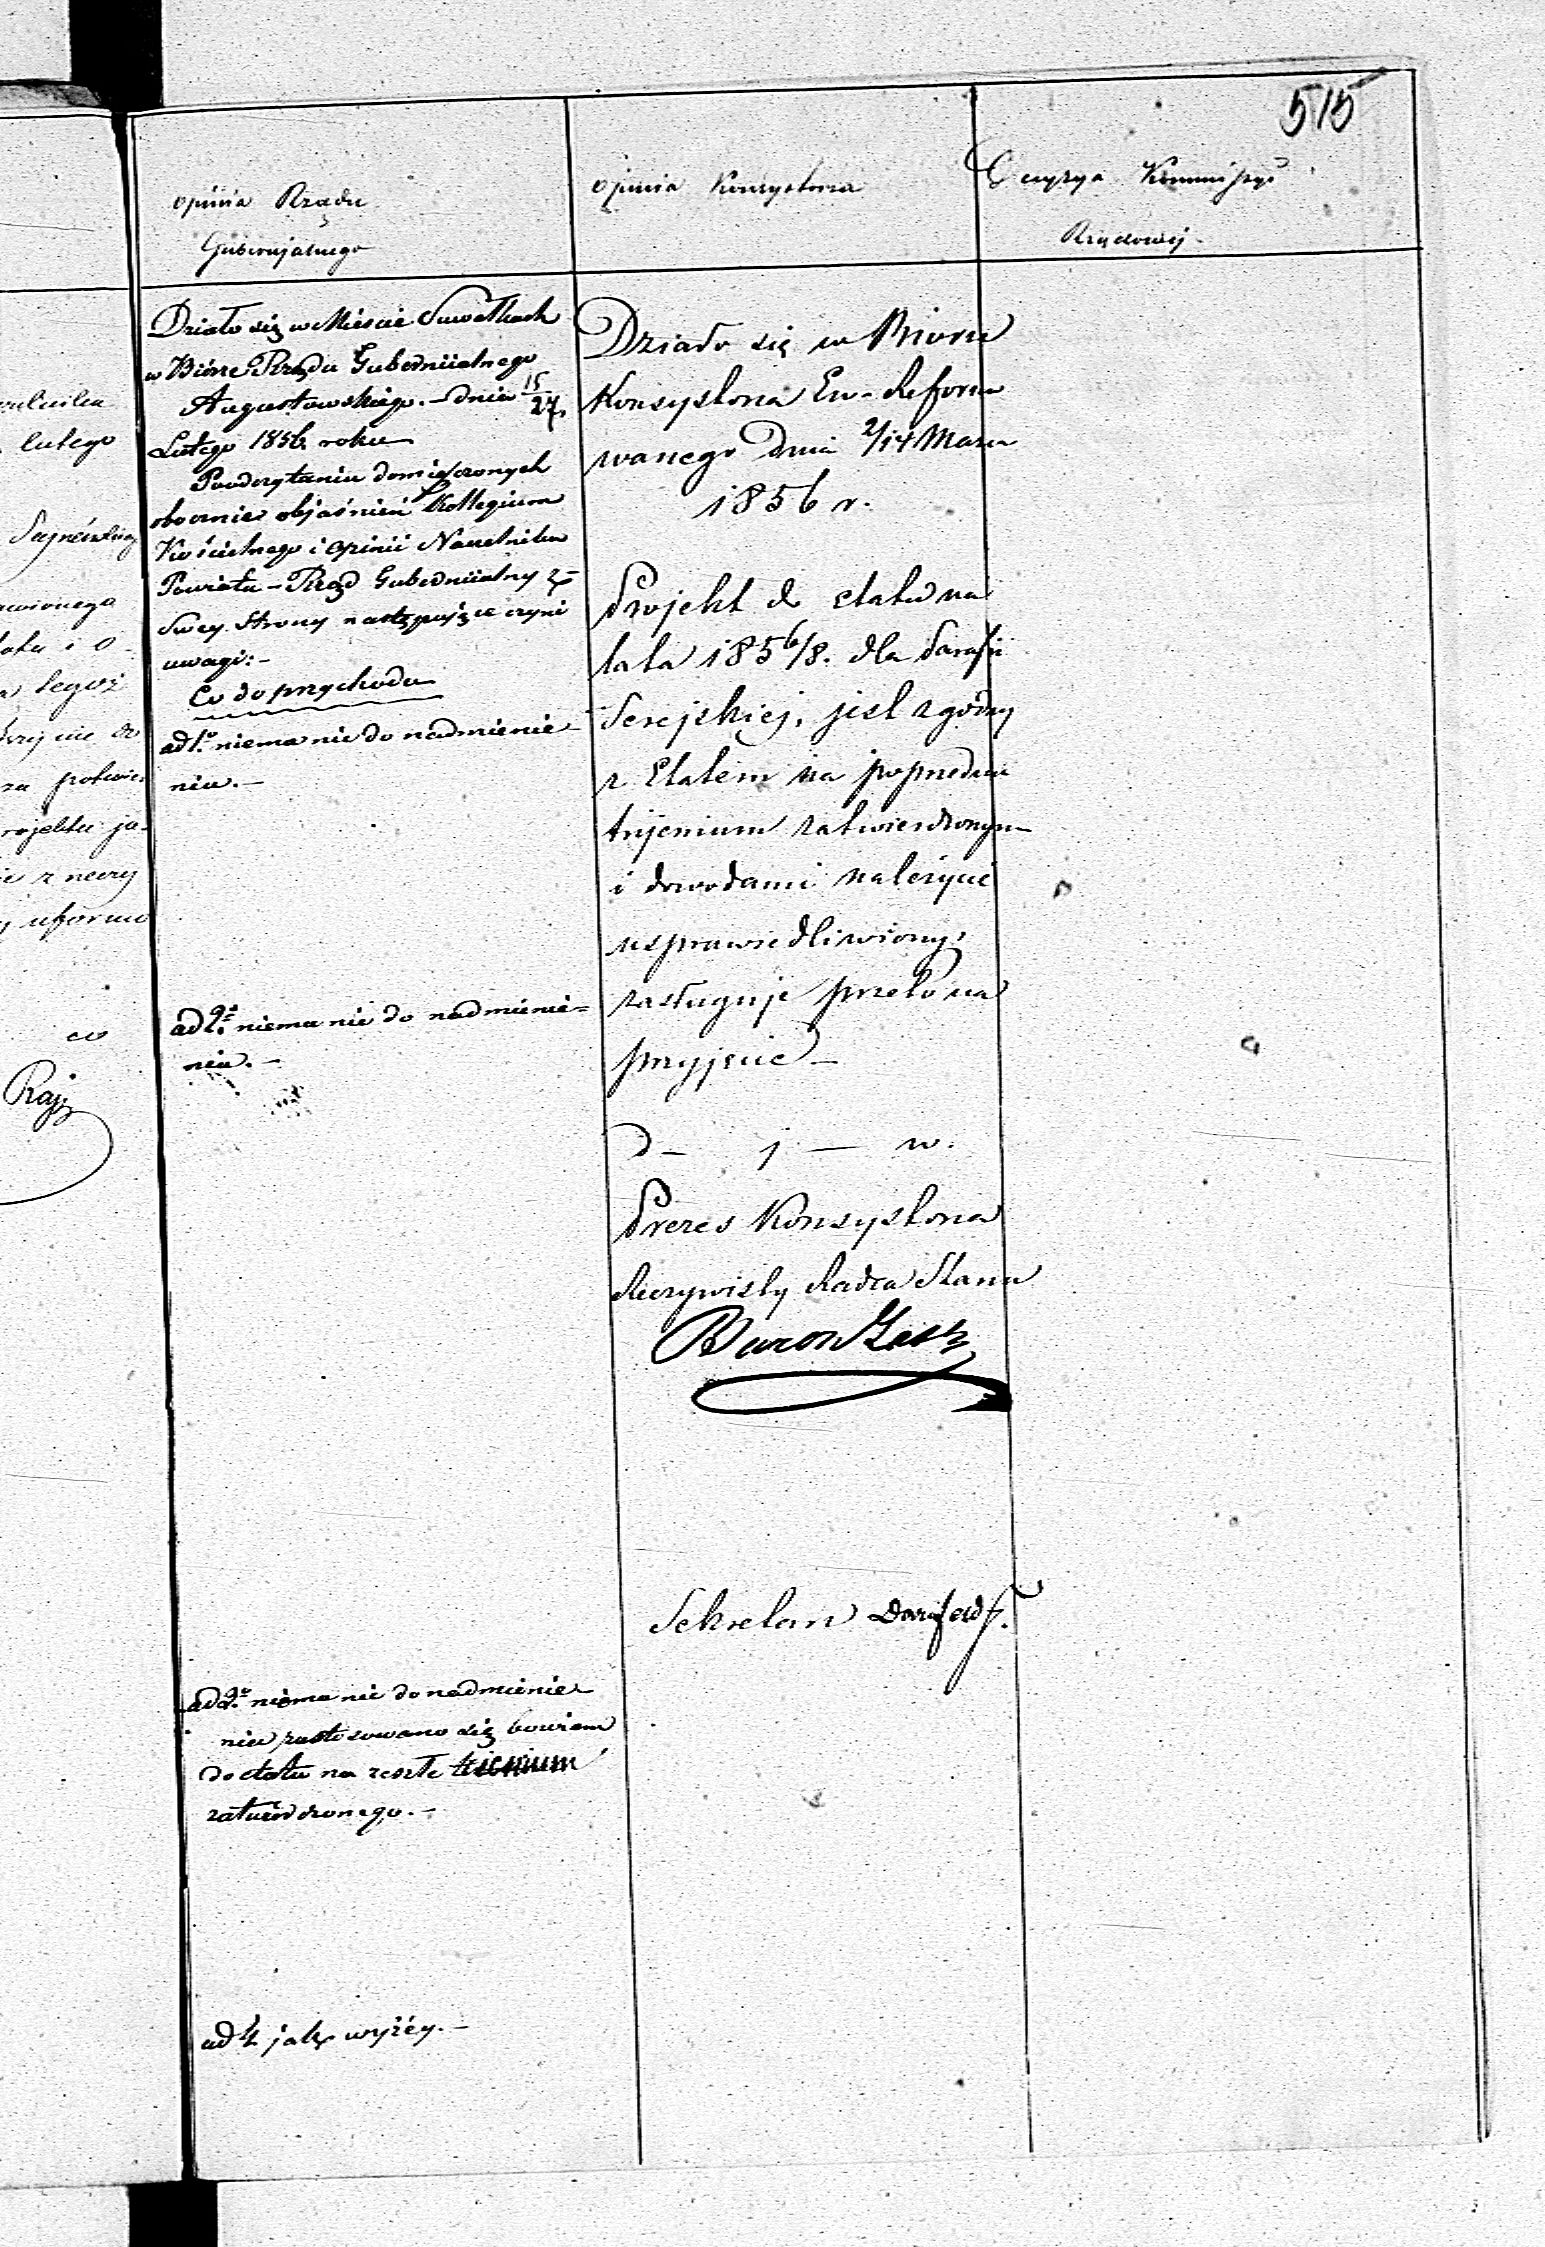 515
opinia Rządu
Gubernjalnego
opinia Konsystorza
Decyzya Kommissyi
Rządowej
naczelnika
lutego
legoż
projektu ja-
co
Raj
Działo się w Mieście Suwałkach
w Biórze Rządu Guberniialnego
Augustowskiego. - dnia 15/27
Lutego 1856 roku
Po odczytaniu domieszczonych
obocznie objaśnień Kollegium
Kościelnego i opinii Naczelnika
Powiatu - Rząd Guberniialny ze
swey strony następujące czyni
uwagi: -
Co do przychodu
ad 1o niema nic do nadmienie-
nia. -
ad 2o niema nic do nadmienie=
nia. -
ad 3o niema nic do nadmienie-
nia zastosowano się bowiem
do etatu na zeszłe trienium
zatwierdzonego. -
ad 4 jak wyżéy. -
Działo się w Biorze
Konsystorza Ew-Refor-
wanego Dnia 2/14 Marca
1856 r.
Projekt do etatu na
lata 1856/8. dla Parafii
Serejskiej, jest zgodny
z Etatem na poprzednie
trijenium zatwierdzonym
i dowodami należycie
usprawiedliwiony,
zasługuje przeto na
przyjęcie -
D - j - w.
Prezes Konsystorza
Rzeczywisty Radca Stanu
Baron
Sekretarz